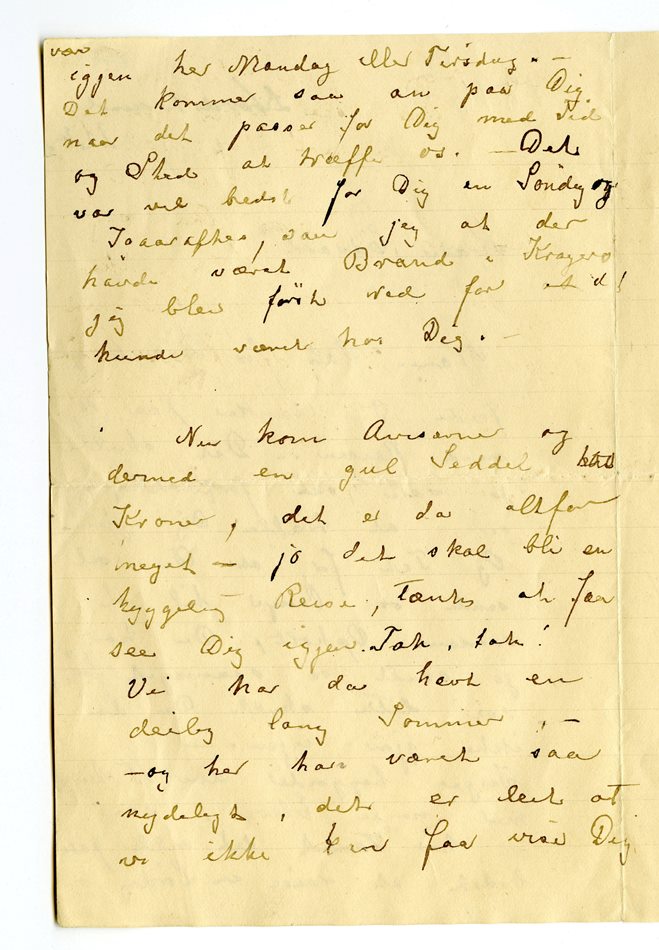 vær
igjen her Mandag eller Tirsdag. –
Det kommer saa an paa Dig
naar det passer for Dig med Tid
og Sted at træffe os. – Det
var vel bedst for Dig en Söndag
I saa jeg at der
havde været Brand i Kragerø
jeg blev först ræd for at d
kunde været hos Dig. –
Nu kom Aviserne og
dermed en gul Seddel
Kroner, det er da altfor
meget – jo det skal bli en
hyggelig Reise, tænk at faa
see Dig igjen. Tak, tak!
Vi har da havt en
deilig lang Sommer, –
– og her har været saa
nydeligt, det er leit at
vi ikke kan faa vise Dig